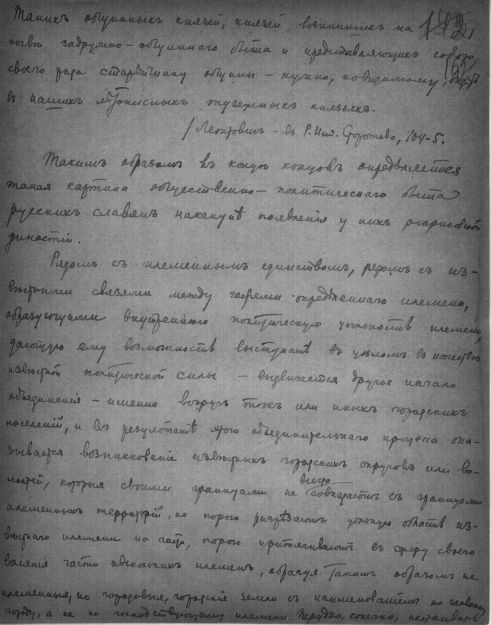 Такихъ общинныхъ князей, князей, возникшихъ на
почвѣ задружно-общиннаго быта и представляющихъ
своего рода старѣйшину общины - нужно, повидимому,
въ нашихъ лѣтописныхъ туземныхъ князьяхъ.
/Леонтовичъ - въ 104-5.
Такимъ образомъ въ концѣ концовъ опредѣляется
такая картина общественно-политическаго быта
русскихъ славянъ наканунѣ появленія у нихъ рюриковской
династіи.
Рядомъ съ племеннымъ единствомъ, рядомъ съ из-
вѣстными связями между частями опредѣленнаго племени,
образующими внутреннюю политическую цѣльность племени,
дающую ему возможность выступать въ цѣломъ въ качествѣ
извѣстной политической силы - выдвигается другое начало
объединенія - именно вокругъ тѣхъ или иныхъ городскихъ
поселеній, и въ результатѣ этого объединительнаго процесса ока-
зывается возникновеніе извѣстныхъ городскихъ округовъ или во-
лостей, которыя своими границами не всегда совпадаютъ съ границами
племенныхъ территорій, но порою разрѣзаютъ цѣльную область из-
вѣстнаго племени на части, порою притягиваютъ въ сферу своего
вліянія части нѣсколькихъ племенъ, образуя такимъ образомъ не
племенныя, но городовыя, городскія земли съ наименованіемъ по главному
городу, а не по господствующему племени. Трудно, конечно,